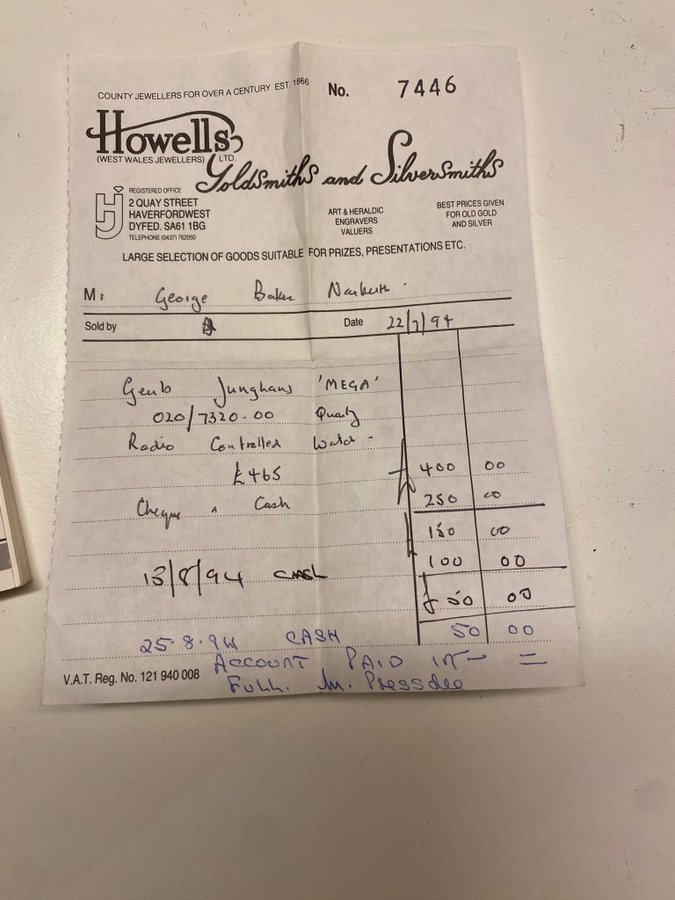 COUNTY JEWELLERS FOR OVER A CENTURY. EST. 1866
No. 7446
Howells
(WEST WALES JEWELLERS) LTD.
Goldsmiths and Silversmiths
HJ
REGISTERED OFFICE
2 QUAY STREET
HAVERFORDWEST
DYFED. SA61 1BG
TELEPHONE (0437) 762050
ART & HERALDIC
ENGRAVERS
VALUERS
BEST PRICES GIVEN
FOR OLD GOLD
AND SILVER
LARGE SELECTION OF GOODS SUITABLE FOR PRIZES, PRESENTATIONS ETC.
Mr George Baker Narberth
Sold by Date 22/7/94
Gents Junghans 'MEGA'
020/7320.00 Quartz
Radio Controlled Watch -
£465 400 00
250 00
Cheque Cash
150 00
100 00
13/8/94 CASH
£50 00
25.8.94 CASH 50 00
ACCOUNT PAID IN =
V.A.T. Reg. No. 121 940 008
FULL. M. Pressdee